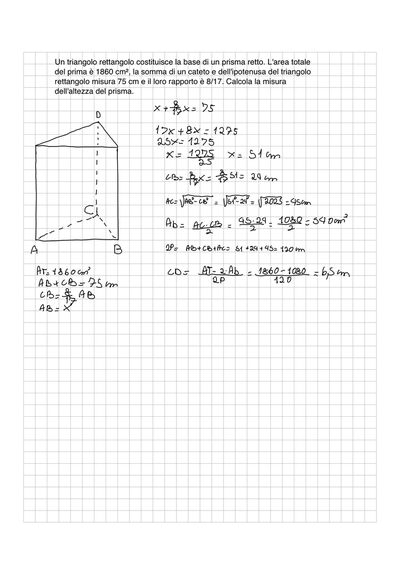 Un triangolo rettangolo costituisce la base di un prisma retto. L'area totale
del prima è 1860 cm², la somma di un cateto e dell'ipotenusa del triangolo
rettangolo misura 75 cm e il loro rapporto è 8/17. Calcola la misura
dell'altezza del prisma.
D
C
A B
AT = 1860 cm²
AB + CB = 75 cm
CB = 8/17 AB
AB = x
x + 8/17 x = 75
17x + 8x = 1275
25x = 1275
x = 1275/25 x = 51 cm
CB = 8/17 x = 8/17 51 = 24 cm
AC = √AB² - CB² = √51² - 24² = √2025 = 45 cm
Ab = AC · CB/2 = 45 · 24/2 = 1080/2 = 540 cm²
2P = AB + CB + AC = 51 + 24 + 45 = 120 cm
CD = AT - 2 · Ab/2P = 1860 - 1080/120 = 6,5 cm